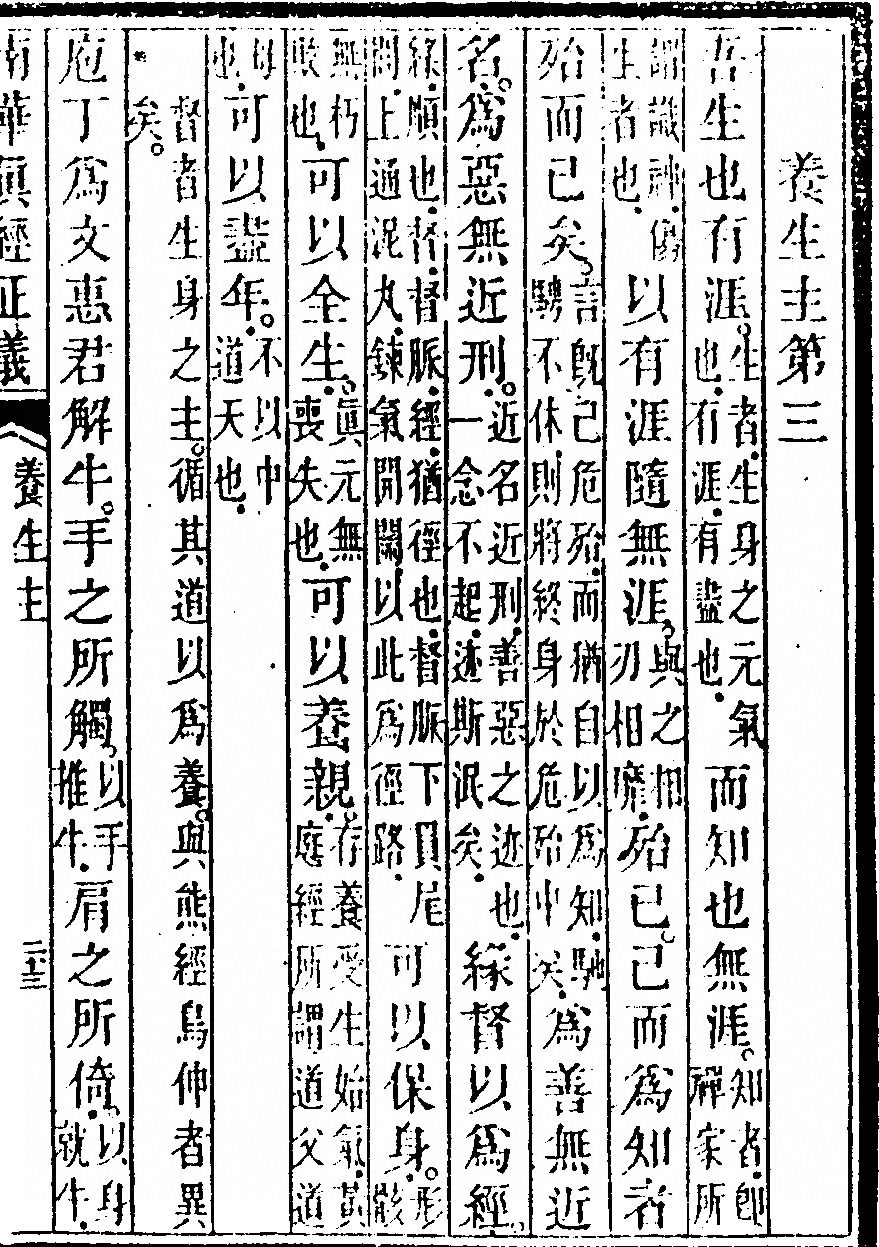 養生主第三
吾生也有涯。生者.生身之元氣也.有涯.有盡也.而知也無涯。知者.即禪家所
謂識神.傷生者也.以有涯隨無涯、與之相刃相靡.殆已。已而爲知者
殆而已矣、言既已危殆.而猶自以爲知.馳騁不休.則將終身於危殆中矣.爲善無近
名。爲惡無近刑。近名近刑.善惡之迹也.一念不起.迹斯泯矣.緣督以爲經。
緣.順也.督.督脈.經.猶徑也.督脈下貫尾閭.上通泥丸.鍊氣開關.以此爲徑路.可以保身。形骸
無朽敗也.可以全生。眞元無喪失也.可以養親。存養受生始氣.黃庭經所謂道父道
母也.可以盡年。不以中道夭也.
督者生身之主。循其道以爲養。與熊經鳥伸者異
矣。
庖丁爲文惠君解牛。手之所觸、以手推牛.肩之所倚、以身就牛.
南華眞經正義 養生主 二十三